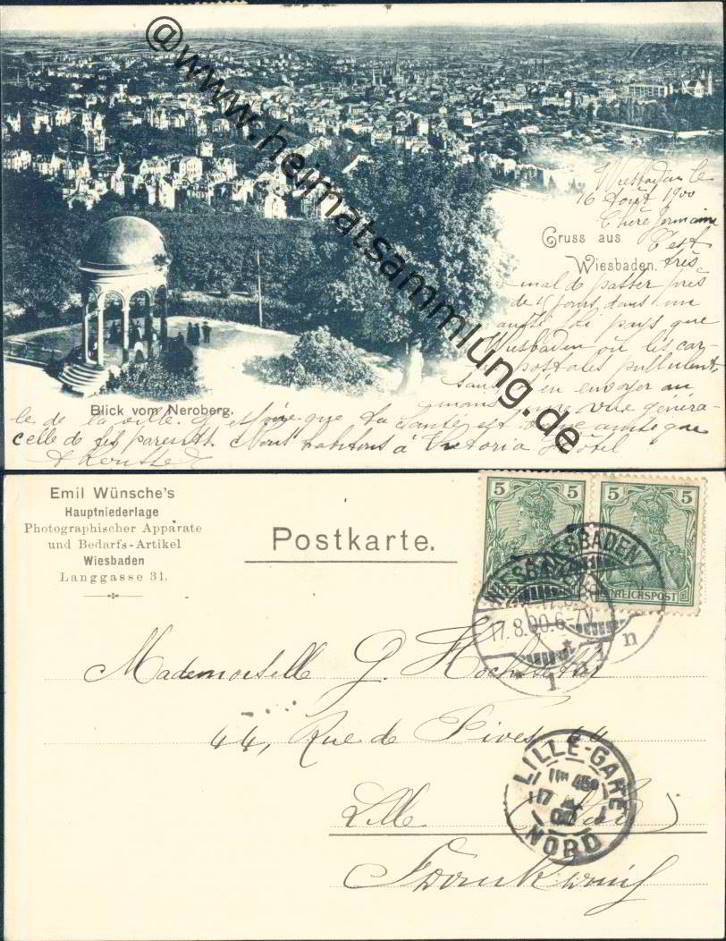 @www.heimatsammlung.de
Wiesbaden le
16 Août 1900
Chère Germaine
Gruss aus
Wiesbaden.
C'est
très
mal de passer près
de 15 jours dans un
aussi pays que
Wiesbaden où les car-
postales pullulent
sans en envoyer au
moins une vue généra-
Blick vom Neroberg.
le de la ville. que ta santé est que
celle de tes parents. Nous habitons à Victoria Hôtel
Emil Wünsche's
Hauptniederlage
Photographischer Apparate
und Bedarfs-Artikel
Wiesbaden
Langgasse 31.
Postkarte.
5 5 5 5
REICHSPOST
WIESBADEN
WIESBADEN
17.8.00.6-7V.
1 n
1 n
Mademoiselle G.
44, Rue de
Lille
Frankreich
LILLE-GARE
17
00
NORD